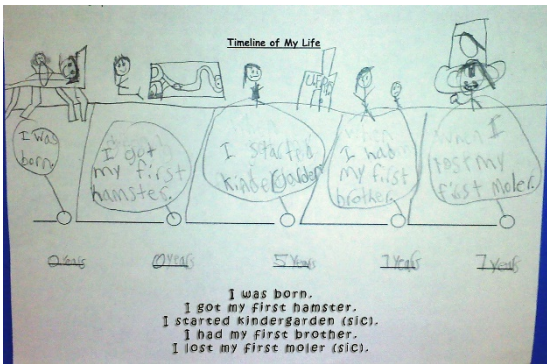 Timeline of My Life
I was
born.
I got
my first
hamster.
I started
When
I had
my first
brother.
When I
lost my
first moler.
0 years
0 years
5 years
years
7 years
I was born.
I got my first hamster.
I started kindergarden (sic).
I had my first brother.
I lost my first moler (sic).